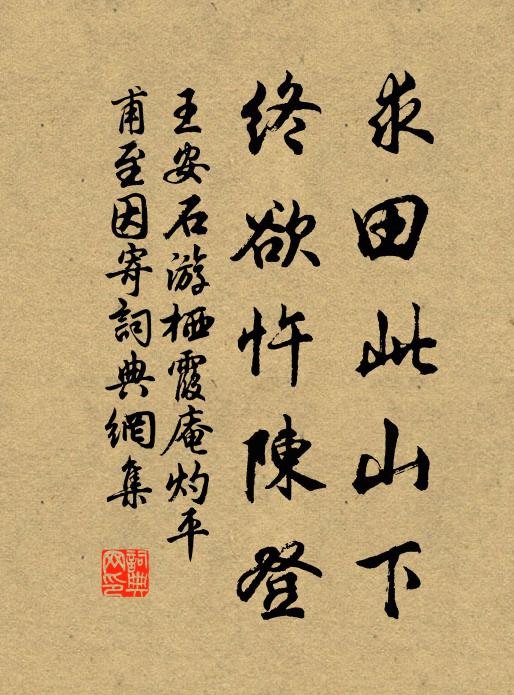 求田此山下
終欲忤陳登
王安石游栖霞庵灼平
甫至因寄詞典網集
詞典網印